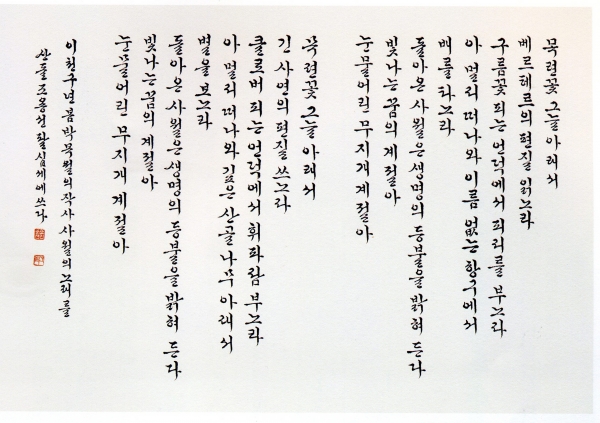 목련꽃 그늘 아래서
베르테르의 편질 읽노라
구름꽃 피는 언덕에서 피리를 부노라
아 멀리 떠나와 이름 없는 항구에서
배를 타노라
돌아온 사월은 생명의 등불을 밝혀 든다
빛나는 꿈의 계절아
눈물어린 무지개 계절아
목련꽃 그늘 아래서
긴 사연의 편질 쓰노라
클로버 피는 언덕에서 휘파람 부노라
아 멀리 떠나와 깊은 산골 나무 아래서
별을 보노라
돌아온 사월은 생명의 등불을 밝혀 든다
빛나는 꿈의 계절아
눈물어린 무지개 계절아
이천구년 봄 박목월의 작사 사월의 노래를
산돌 조용선 팔십세에 쓰다